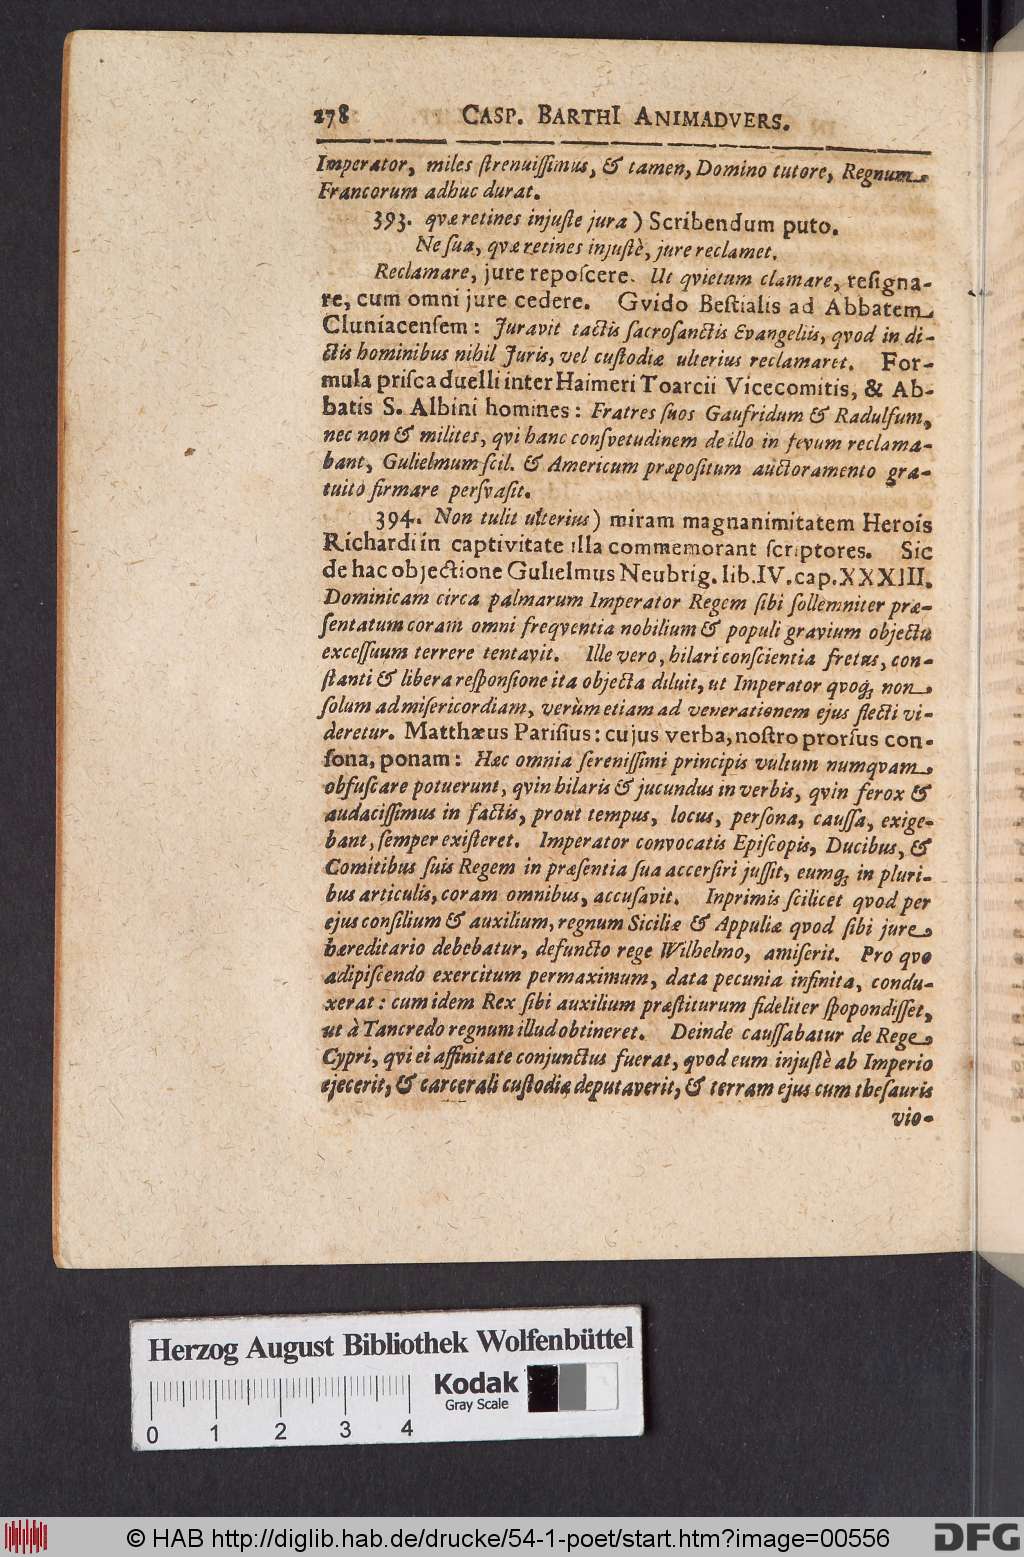 278 CASP. BARTHI ANIMADVERS.
Imperator, miles ſtrenuiſſimus, & tamen, Domino tutore, Regnum
Francorum adhuc durat.
393. qvæ retines injuſte jura ) Scribendum puto.
Ne ſua, qvæ retines injuſtè, jure reclamet.
Reclamare, jure repoſcere. Ut qvietum clamare, reſigna-
re, cum omni jure cedere. Gvido Beſtialis ad Abbatem
Cluniacenſem: Juravit tactis ſacroſanctis Evangeliis, qvod in di-
ctis hominibus nihil Juris, vel cuſtodiæ ulterius reclamaret. For-
mula priſca duelli inter Haimeri Toarcii Vicecomitis, & Ab-
batis S. Albini homines: Fratres ſuos Gaufridum & Radulfum,
nec non & milites, qvi hanc conſvetudinem de illo in fevum reclama-
bant, Gulielmum ſcil. & Americum præpoſitum auctoramento gra-
tuito firmare perſvaſit.
394. Non tulit ulterius) miram magnanimitatem Herois
Richardi in captivitate illa commemorant ſcriptores. Sic
de hac objectione Gulielmus Neubrig. lib. IV. cap. XXXIII.
Dominicam circa palmarum Imperator Regem ſibi ſollemniter præ-
ſentatum coram omni freqventia nobilium & populi gravium objectu
exceſſuum terrere tentavit. Ille vero, hilari conſcientia fretus, con-
ſtanti & libera reſponſione ita objecta diluit, ut Imperator qvoq; non
ſolum ad miſericordiam, verùm etiam ad venerationem ejus flecti vi-
deretur. Matthæus Pariſius: cujus verba, noſtro prorſus con-
ſona, ponam: Hæc omnia ſereniſſimi principis vultum numqvam
obfuſcare potuerunt, qvin hilaris & jucundus in verbis, qvin ferox &
audaciſſimus in factis, prout tempus, locus, perſona, cauſſa, exige-
bant, ſemper exiſteret. Imperator convocatis Epiſcopis, Ducibus, &
Comitibus ſuis Regem in præſentia ſua accerſiri juſſit, eumq; in pluri-
bus articulis, coram omnibus, accuſavit. Inprimis ſcilicet qvod per
ejus conſilium & auxilium, regnum Siciliæ & Appuliæ qvod ſibi jure
hæreditario debebatur, defuncto rege Wilhelmo, amiſerit. Pro qvo
adipiſcendo exercitum permaximum, data pecunia infinita, condu-
xerat: cum idem Rex ſibi auxilium præſtiturum fideliter ſpopondiſſet,
ut à Tancredo regnum illud obtineret. Deinde cauſſabatur de Rege
Cypri, qvi ei affinitate conjunctus fuerat, qvod eum injuſtè ab Imperio
ejecerit, & carcerali cuſtodiæ deputaverit, & terram ejus cum theſauris
vio-
Herzog August Bibliothek Wolfenbüttel
Kodak
Gray Scale
0 1 2 3 4
© HAB http://diglib.hab.de/drucke/54-1-poet/start.htm?image=00556
DFG